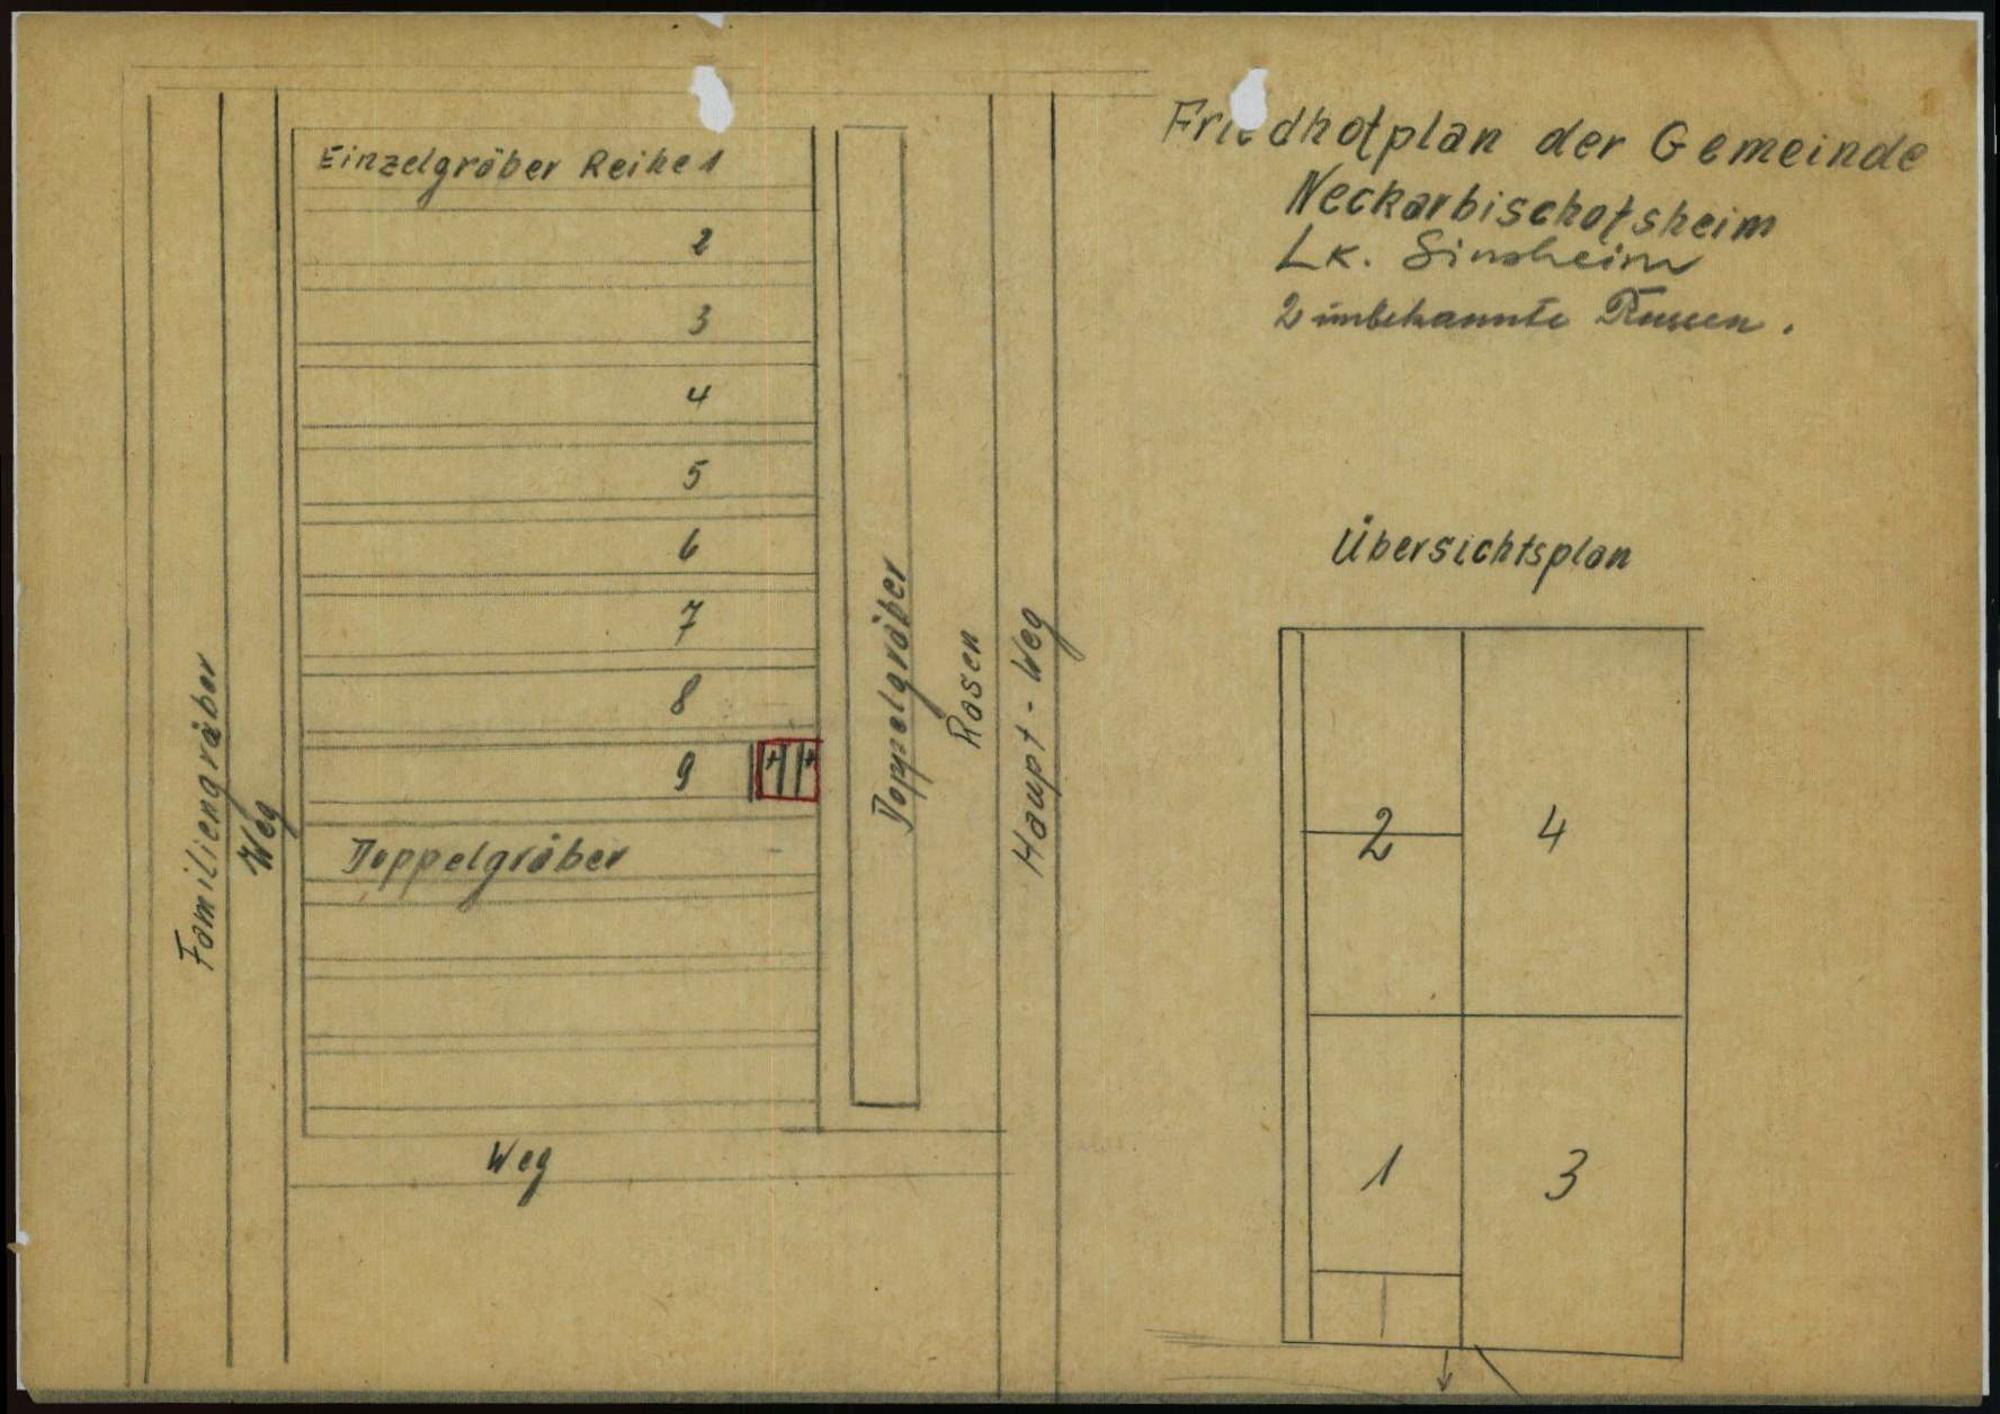 Friedhofplan der Gemeinde
Neckarbischofsheim
Lk. Sinsheim
2 unbekannte Russen.
Einzelgräber Reihe 1
2
3
4
5
6
7
8
9
Doppelgräber
Weg
Familiengräber
Weg
Doppelgräber
Rasen
Haupt-Weg
Übersichtsplan
2
4
1
3